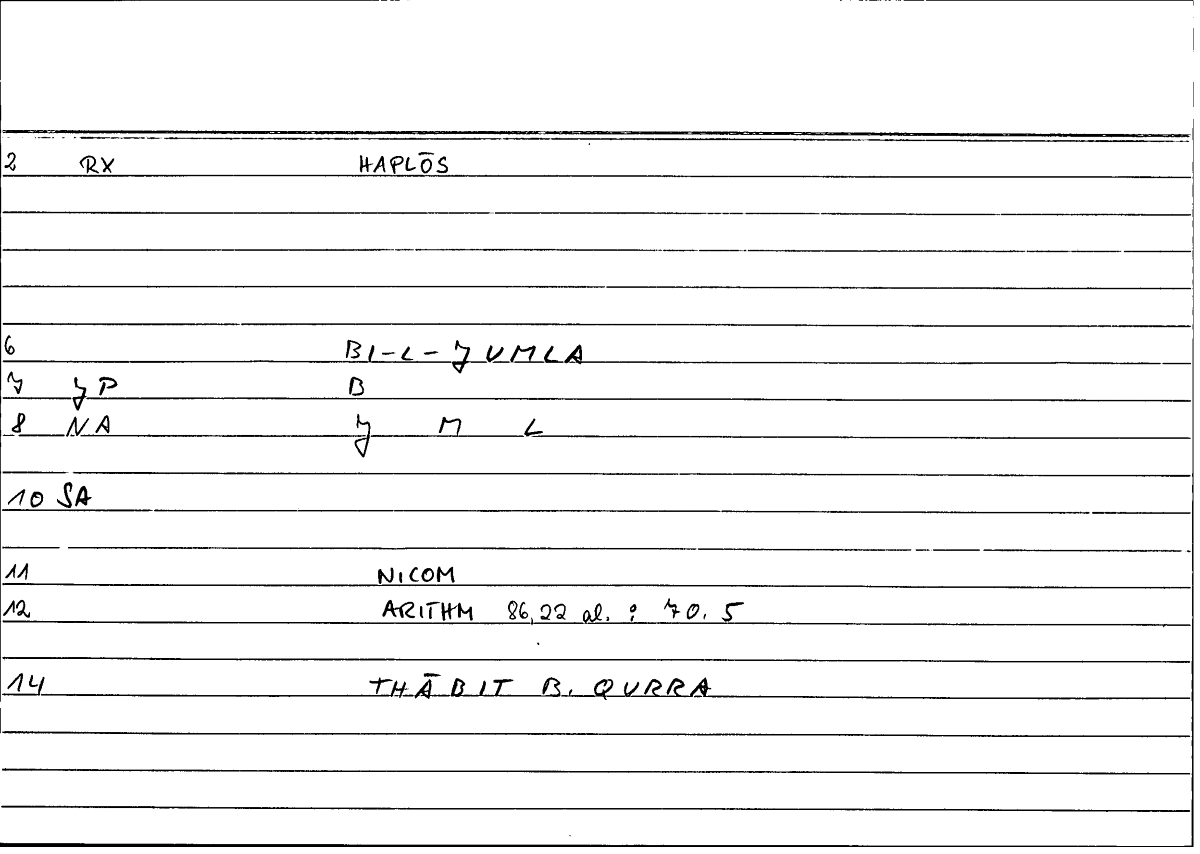 2 RX HAPLŌS
6 BI-L-JUMLA
7 JP B
8 NA J M L
10 SA
11 NICOM
12 ARITHM 86,22 al. : 70.5
14 THĀBIT B. QURRA